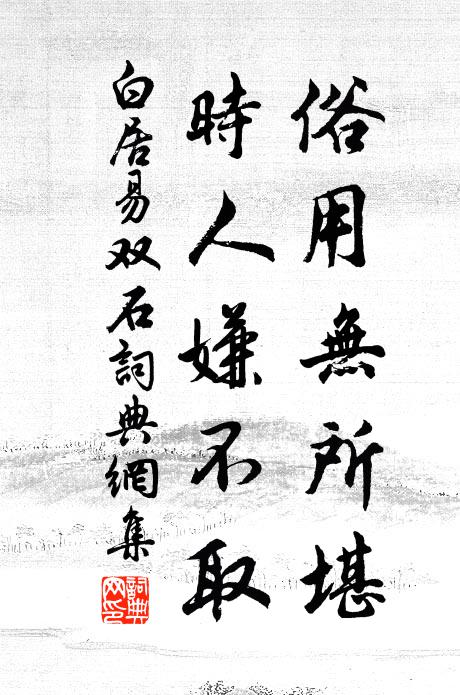 俗用無所堪
時人嫌不取
白居易双石詞典網集
詞典网印